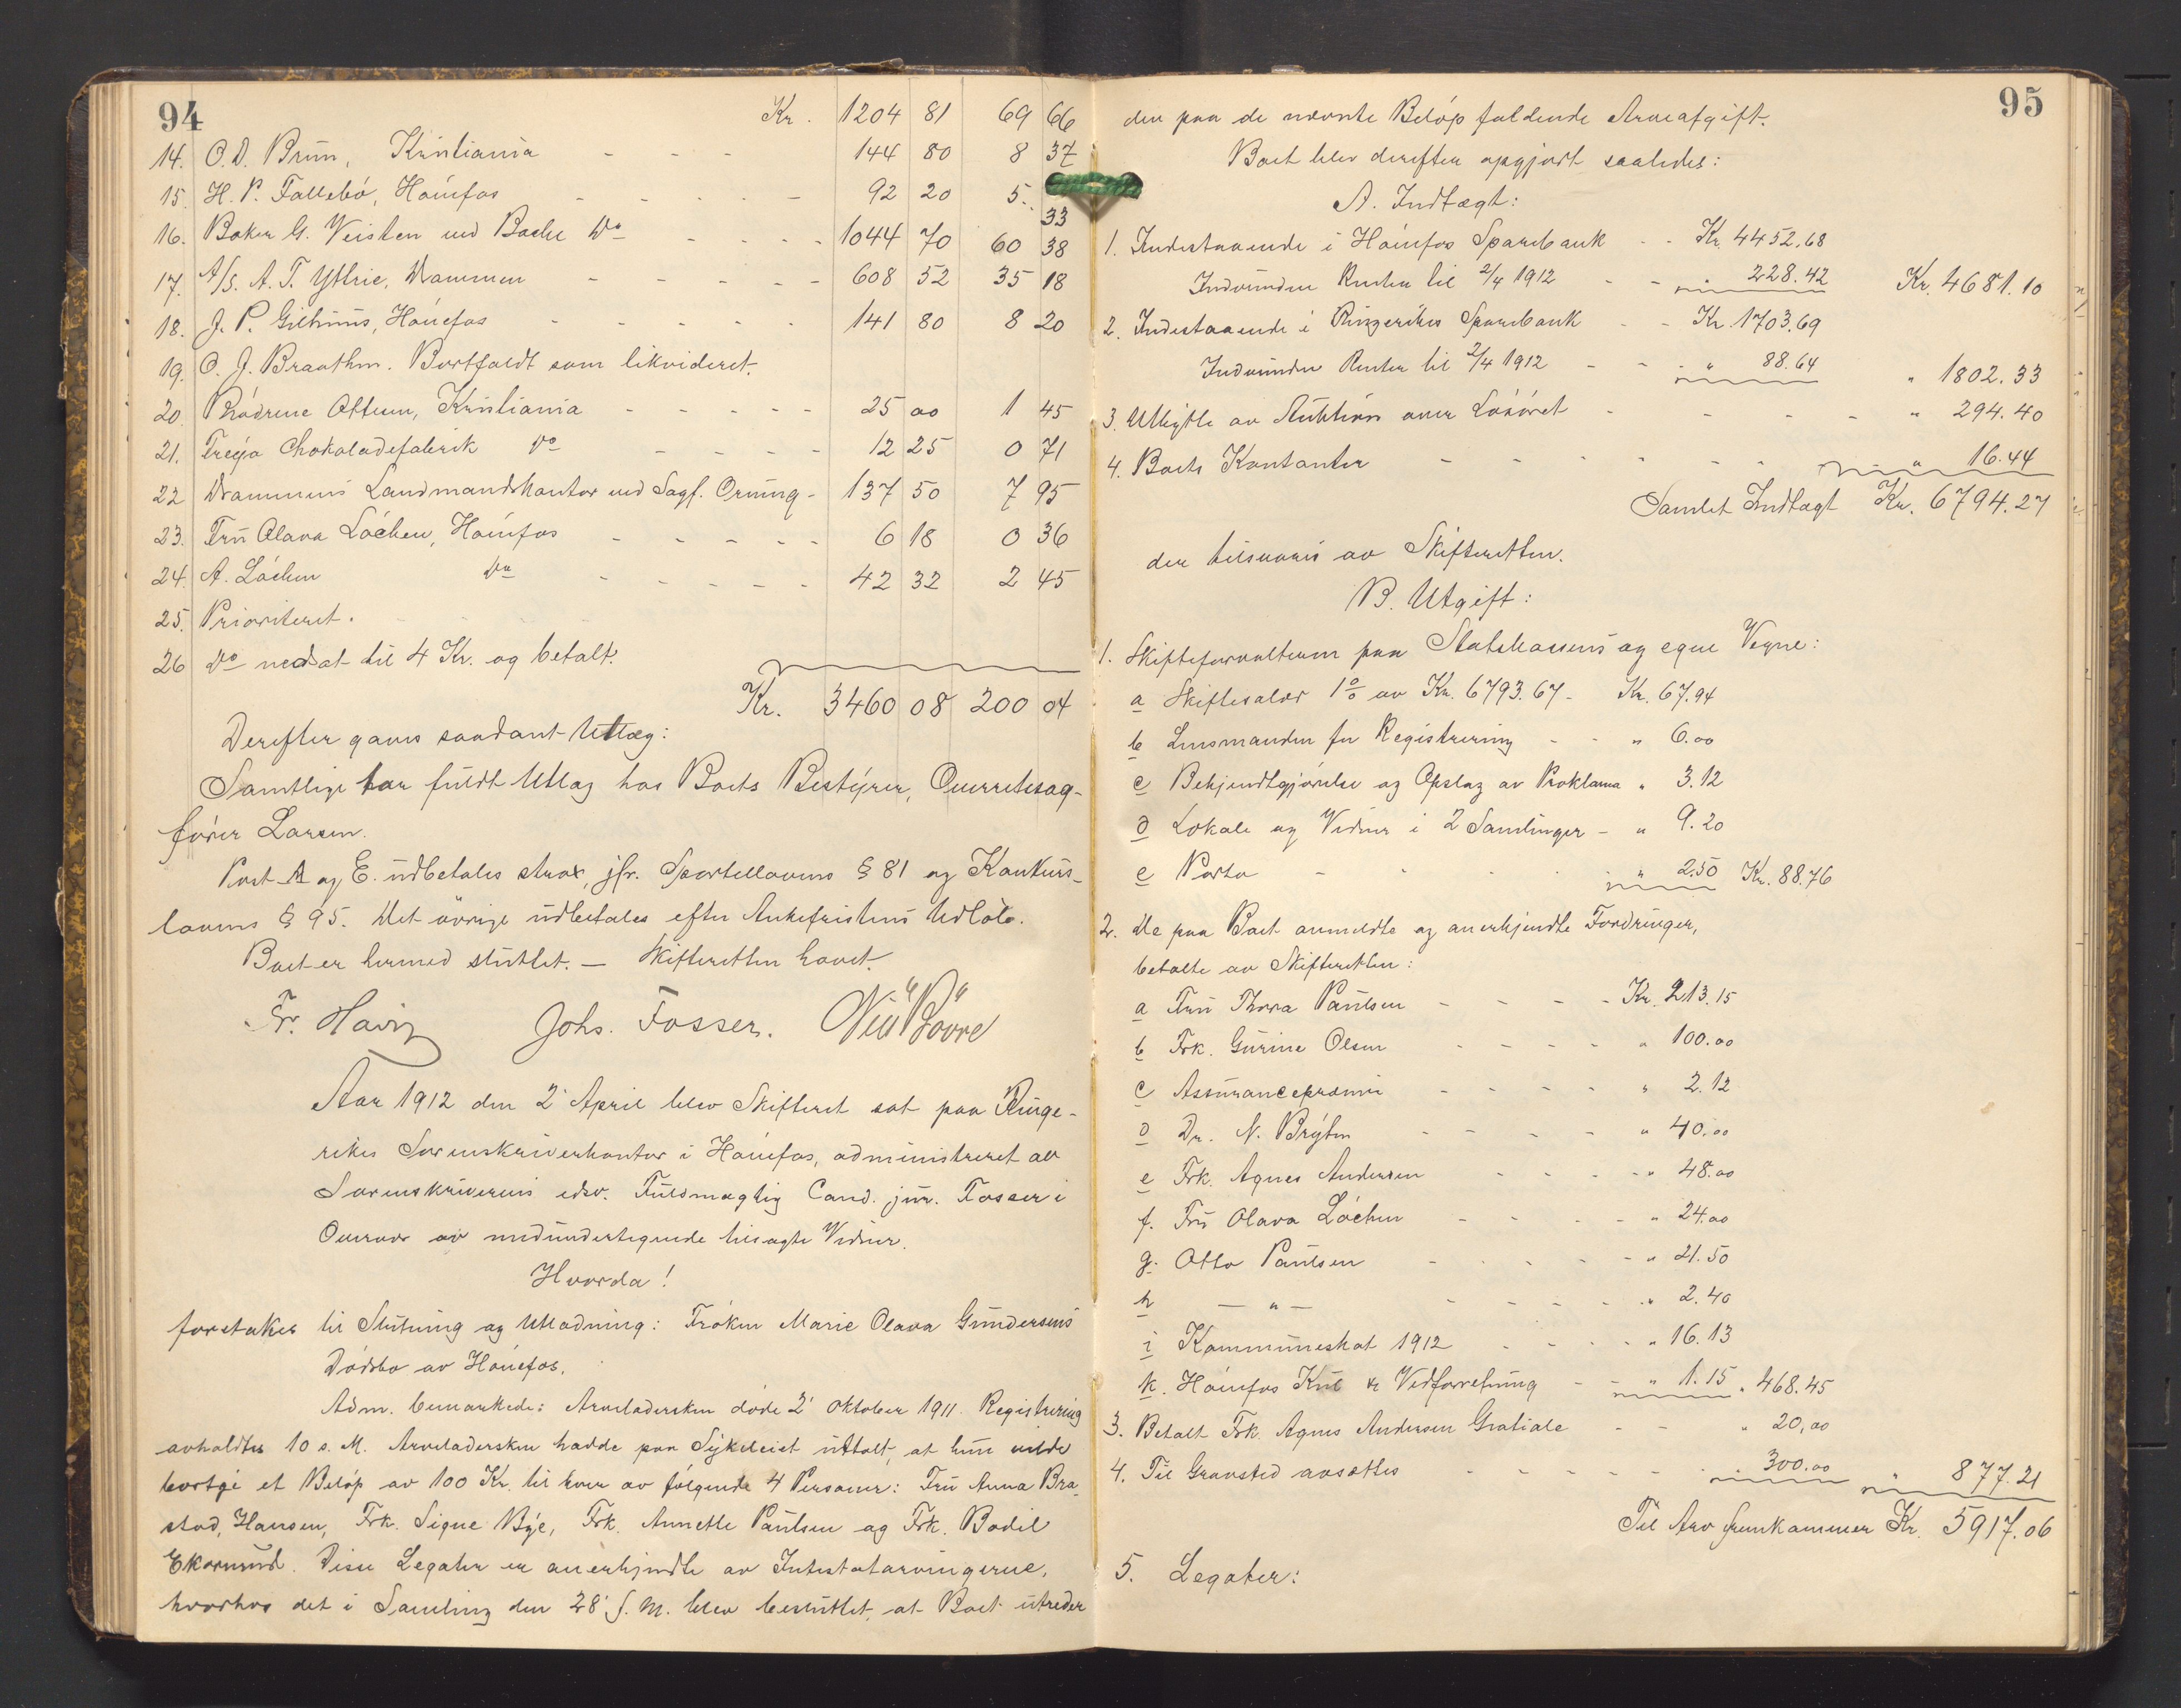 94
Kr. 1204 81 69 66
14. O. D. Bruun, Kristiania - - - 144 80 8 37
15. H. P. Follebö, Hönefos - - - - 92 20 5. 33
16. Baker G. Veisten ved Bache Do - - - - 1044 70 60 38
17. A/S. A. T. Ythrie, Drammen - - - - - 608 52 35 18
18. J. P. Gilhuus, Hönefos - - - - - 141 80 8 20
19. O. J. Braathen. Bortfaldt som likvideret.
20. Brødrene Ottesen, Kristiania - - - - - 25 00 1 45
21. Freya Chokoladefabrik Do - - - - 12 25 0 71
22 Drammens Landmandskontor ved Sagf. Orning - 137 50 7 95
23. Fru Olava Löchen, Hönefos - - - - - 6 18 0 36
24. A. Löchen Do - - - - - 42 32 2 45
25. Prioriteret.
26 Do nedsat til 4 Kr. og betalt.
Kr. 3460 08 200 04
Derefter gaves saadant Utlæg:
Samtlige har fuldt Utlæg hos Boets Bestyrer, Overretssag-
förer Larsen.
Post A og E. udbetales strax, jfr. Sportellovens § 81 og Konkurs-
lovens § 95. Det övrige udbetales efter Ankefristens Udlöb.
Boet er hermed sluttet. — Skifteretten hævet.
Fr. Johs. Fosser.
Aar 1912 den 2' April blev Skifteret sat paa Ringe-
rikes Sorenskriverkontor i Hönefos, administreret av
Sorenskriverens edsv. Fuldmægtig Cand. jur. Fosser i
Overvær av medundertegnede tilsagte Vidner.
Hvorda!
foretakes til Slutning og Utlodning: Fröken Marie Olava Gundersens
Dödsbo av Hönefos.
Adm. bemærkede: Arveladersken döde 2' Oktober 1911. Registrering
avholdtes 10 s. M. Arveladersken hadde paa Sykeleiet uttalt, at hun vilde
bortgi et Belöp av 100 Kr. til hver av fölgende 4 Personer: Fru Anna Bra-
stad, Hansen, Frk. Signe Bye, Frk. Annette Paulsen og Frk. Bodil
Ekornrud. Disse Legater er anerkjendte av Intestatarvingerne,
hvorhos det i Samling den 28' f. M. blev besluttet, at Boet utreder
95
den paa de nævnte Belöp faldende Arveafgift.
Boet blev derefter opgjort saaledes:
A. Indtægt:
1. Indestaaende i Hönefos Sparebank - - Kr. 4452.68
Indvundne Renter til 2/4 1912 - - . 228.42 Kr. 4681.10
2. Indestaaende i Ringerikes Sparebank - - Kr 1703.69
Indvundne Renter til 2/4 1912 - - " 88.64 " 1802.33
3. Utbytte av Auktion over Lösöret - - - - - " 294.40
4. Boets Kontanter - - - - - - - " 16.44
Samlet Indtægt Kr. 6794.27
der tilsvares av Skifteretten.
B. Utgift:
1. Skifteforvalteren paa Statskassens og egne Vegne:
a Skiftesalær 1% av Kr. 6793.67 - Kr. 67.94
b Lensmanden for Registrering - - " 6.00
c Bekjendtgjörelse og Opslag av Proklama " 3.12
d Lokale og Vidner i 2 Samlinger - " 9.20
e Porto - - - - " 2.50 Kr. 88.76
2. De paa Boet anmeldte og anerkjendte Fordringer,
betalte av Skifteretten:
a Fru Thora Paulsen - - - - Kr. 213.15
b Frk. Gurine Olsen - - - - " 100.00
c Assurancepræmie - - - - " 2.12
d Dr. N. Brýhn - - - - " 40.00
e Frk. Agnes Andersen - - - - " 48.00
f. Fru Olava Löchen - - - - " 24.00
g. Otto Paulsen - - - - - " 21.50
h — " — - - - - - " 2.40
i Kommuneskat 1912 - - - - " 16.13
k. Hönefos Kul & Vedforretning - - " 1.15 " 468.45
3. Betalt Frk. Agnes Andersen Gratiale - - " 20,00
4. Til Gravsted avsættes - - - - - - 300.00 " 877.21
Til Arv fremkommer Kr. 5917.06
5. Legater: